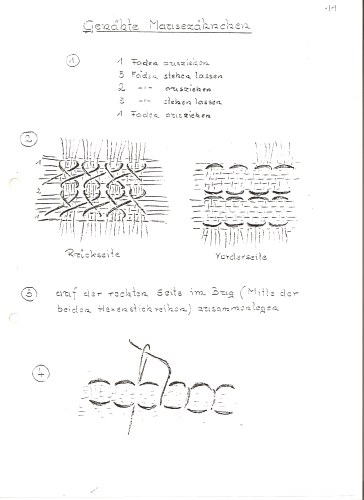 -11-
Genähte Mausezähnchen
1
1 Faden ausziehen
3 Fäden stehen lassen
2 -"- ausziehen
3 -"- stehen lassen
1 Faden ausziehen
2
1
2
1
Rückseite Vorderseite
3 auf der rechten Seite im Bug (Mitte der
beiden Hexenstichreihen) zusammenlegen
4